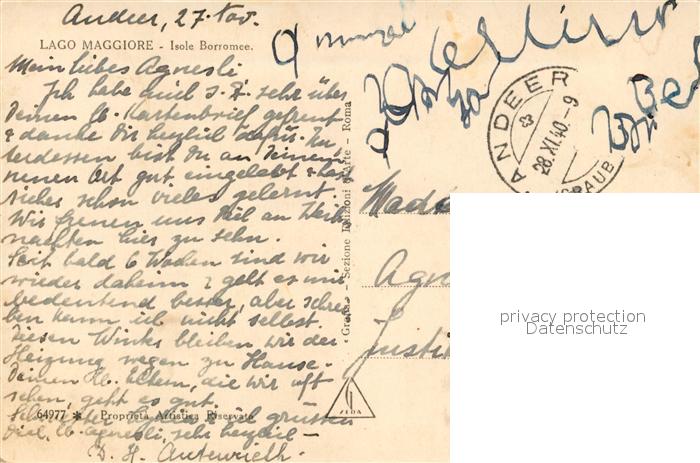 Andeer, 27. Nov.
LAGO MAGGIORE - Isole Borromee.
Mein liebes Agnesli
Ich habe mich s. Z. sehr über
Deinen lb. Kartenbrief gefreut
& danke Dir herzlich dafür. Un
terdessen bist Du an Deinem
neuen Ort gut eingelebt & hast
sicher schon vieles gelernt.
Wir freuen uns Dich an Weih
nachten hier zu sehn.
Seit bald 6 Wochen sind wir
wieder daheim & geht es mir
bedeutend besser, aber schrei
ben kann ich nicht selbst.
Diesen Winter bleiben wir der
Heizung wegen zu Hause.
Deinen lb. Eltern, die wir oft
sehen, geht es gut.
grüssen
Dich, lb. Agnesli, sehr herzlich
64977 * Proprietà Artistica Riservata
« Grafia » Sezione Edizioni d'Arte - Roma
SEDA
ANDEER
28.XI.40.-9
GRAUB
Agn
privacy protection
Datenschutz